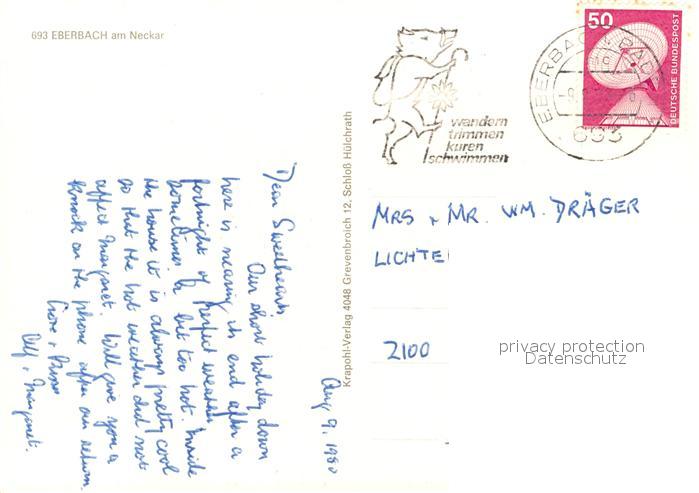 693 EBERBACH am Neckar
50
DEUTSCHE BUNDESPOST
EBERBACH BAD
693
wandern
trimmen
kuren
schwimmen
Krapohl-Verlag 4048 Grevenbroich 12, Schloß Hülchrath
Aug 9, 1980
Dear Sweethearts,
Our short holiday down
here is nearing its end after a
fortnight of perfect weather
sometimes a bit too hot. Inside
the house it is always pretty cool
so that the hot weather did not
affect Margaret. Will give you a
knock on the phone after our return.
Love +
Alf + Margaret.
MRS + MR. WM. DRÄGER
LICHTE
2100
privacy protection
Datenschutz